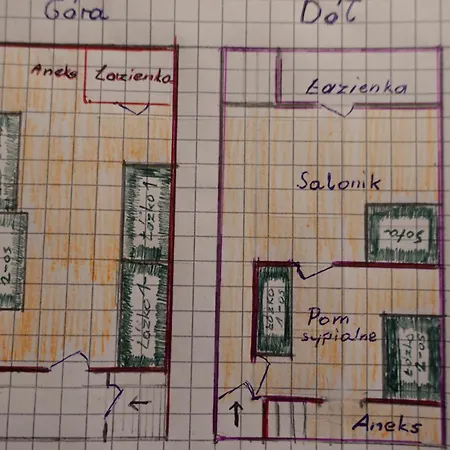 Góra
Dół
Aneks
Łazienka
Łazienka
Salonik
Sofa
Łóżko 1
Łóżko 1-
2-os
Łóżko
1-os
Pom
sypialne
Łóżko
2-os
Aneks